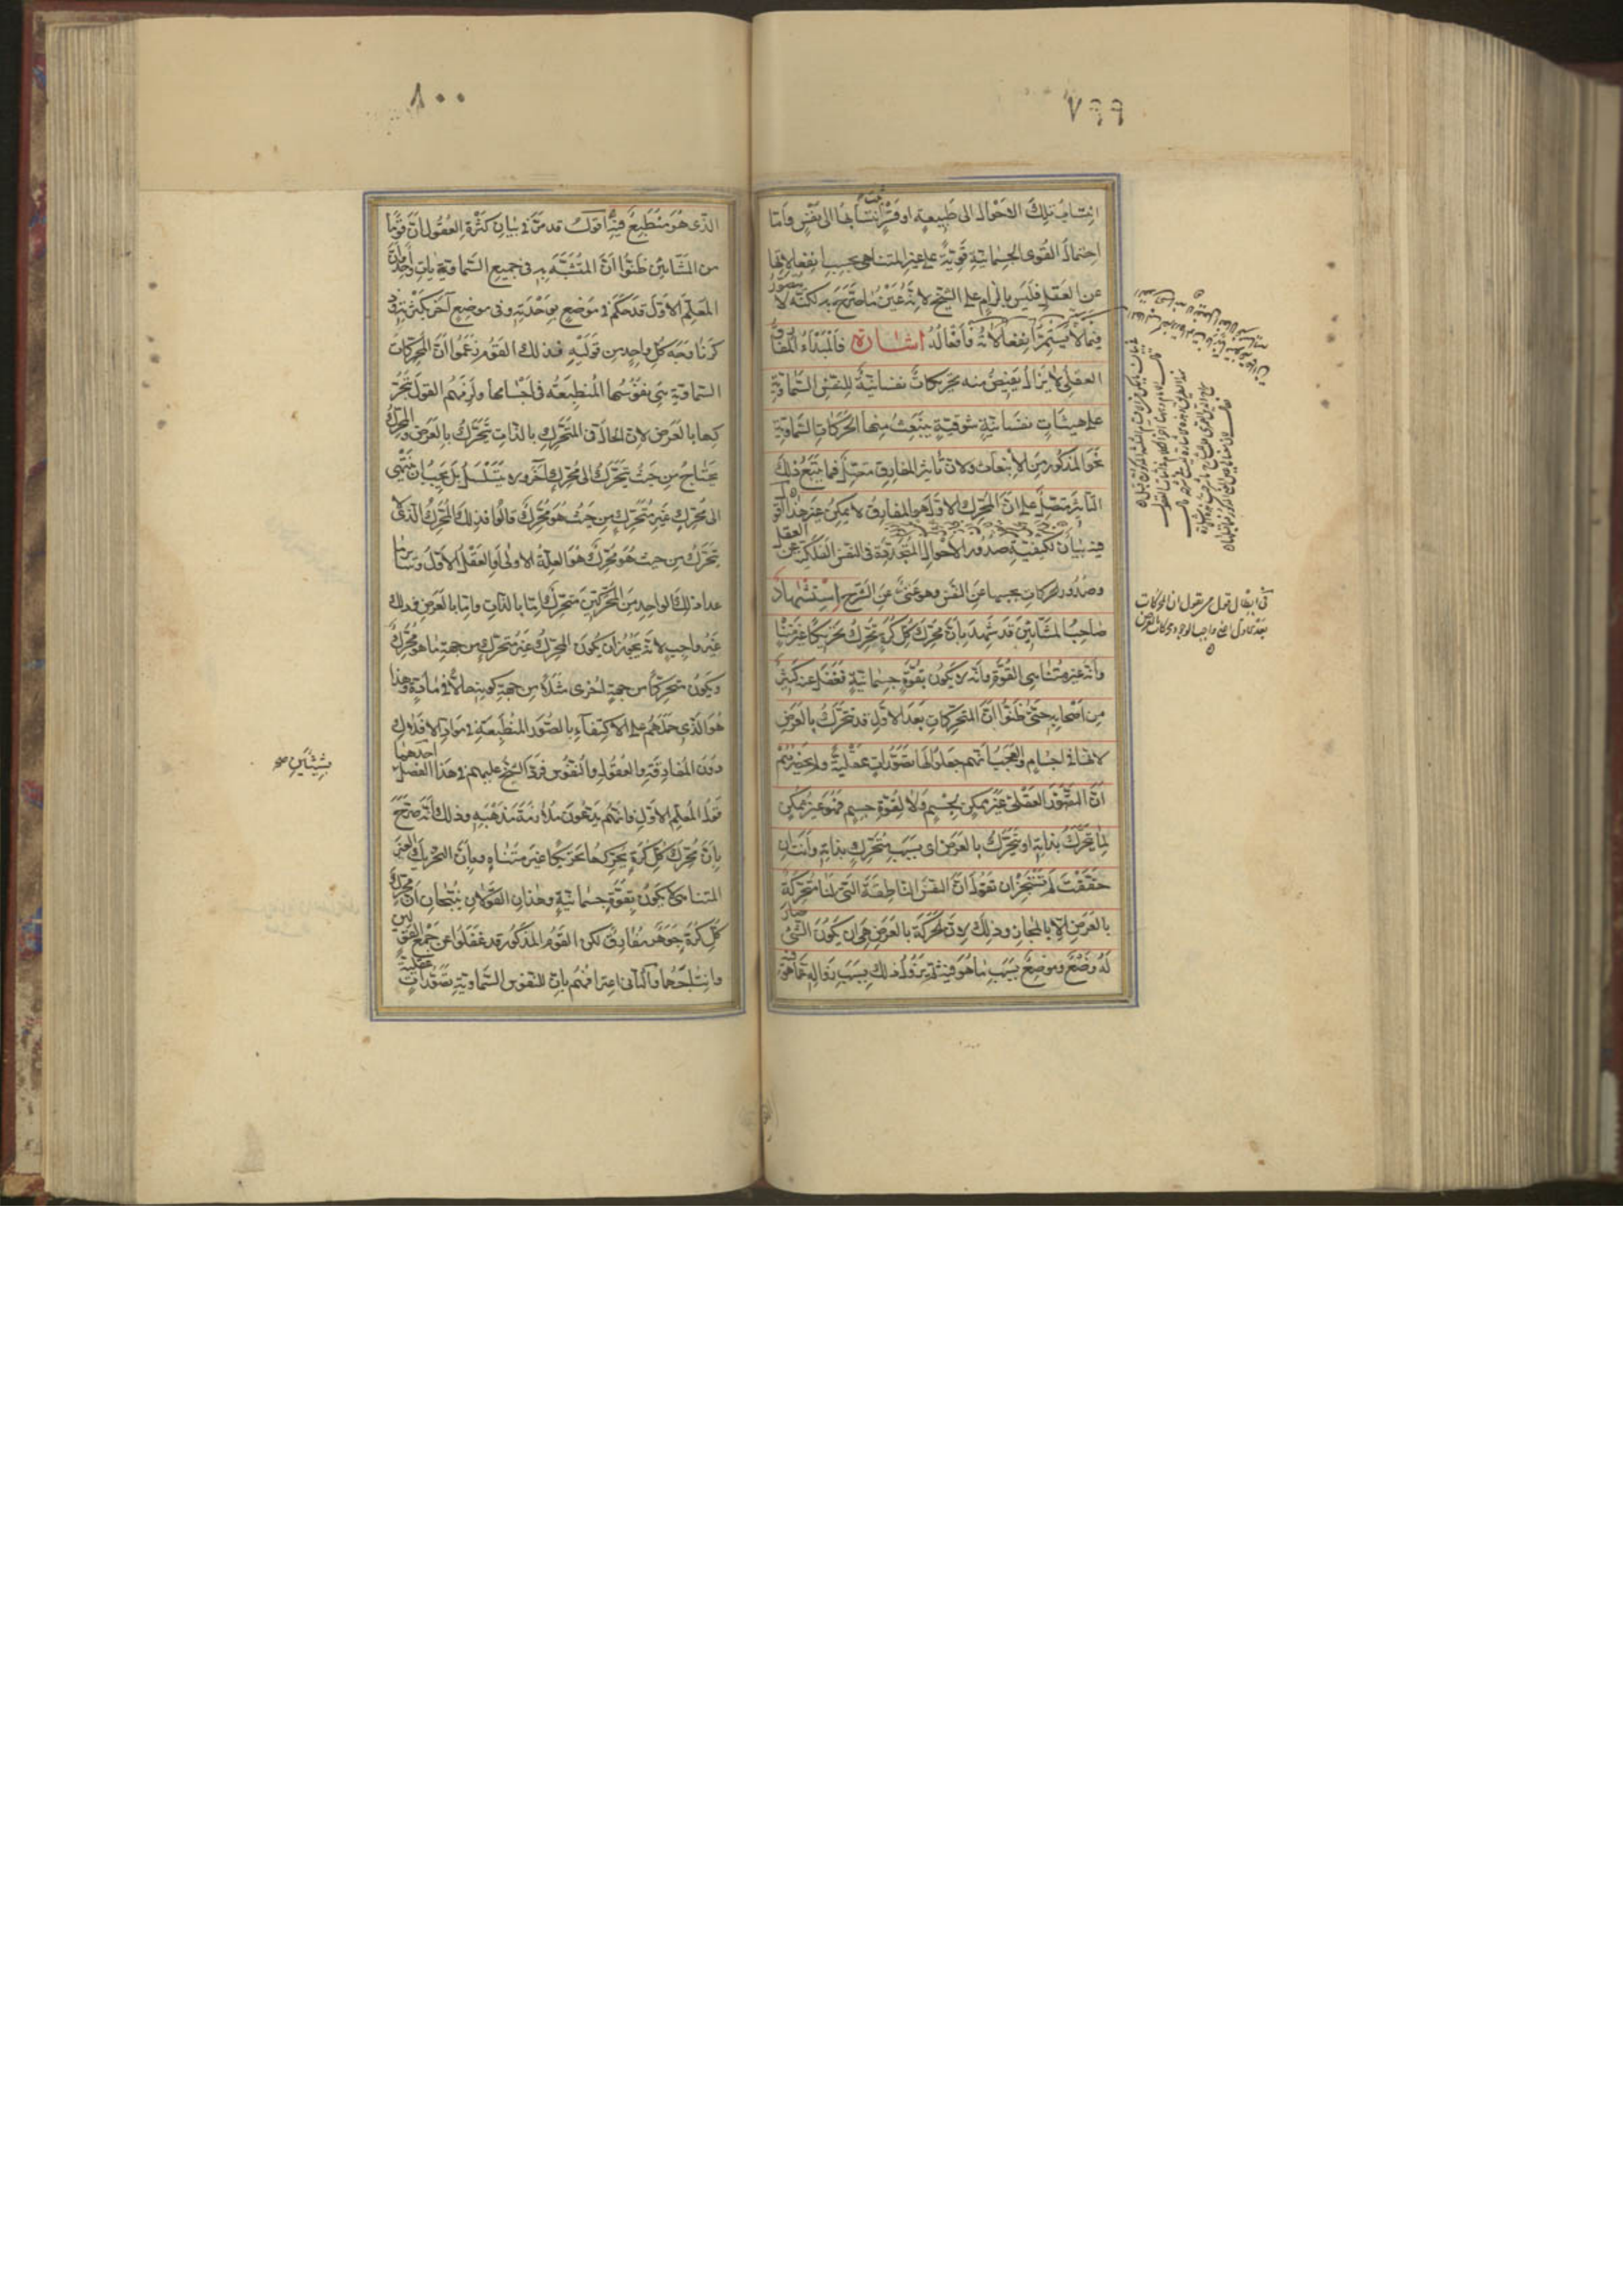 ٧٩٩
انتساب تلك الاحوال الى طبيعة او قسر انتسابها الى نفس واما
احتمال القوى الجسمانية قوية على غير المتناهى بحسب انفعالاتها
عن العقل فليس بالزام على الشيخ لانه عين ما صرح به لكنه لا يتصور
فيما لا يستمر انفعالاته فافعاله اشارة فالمبداء المفارق
العقلى لا يزال يفيض منه تحريكات نفسانية للنفس السماوية
على هيئات نفسانية شوقية ينبعث منها الحركات السماوية
نحو المذكور من الانبعاث ولان تأثير المفارق متصل فما يتبع ذلك
التأثير متصل على ان المحرك الاول هو المفارق لا يمكن غير هذا اقول
فيه بيان لكيفية صدور الاحوال المتجددة فى النفس الفلكية عن العقل
وصدور الحركات بحسبها عن النفس وهو غنى عن الشرح استشهاد
صاحب المشائين قد شهد بان محرك كل كرة تحرك تحريكا غير متناه
وانه غير متناهى القوة وانه لا يكون بقوة جسمانية فغفل عنه كثير
من اصحابه حتى ظنوا ان المتحركات بعد الاول قد تتحرك بالعرض
لانها فى اجسام والعجب انهم جعلوا لها تصورات عقلية ولم يحضرهم
ان التصور العقلى غير ممكن لجسم ولا لقوة جسم فهو غير ممكن
لما يتحرك بذاته او يتحرك بالعرض اى بسبب متحرك بذاته وانت ان
حققت لم تستجز ان تقول ان النفس الناطقة التى لنا متحركة
بالعرض الا بالمجاز وذلك لان الحركة بالعرض هى ان يكون الشئ صار
له وضع وموضع بسبب ما هو فيه ثم يزول ذلك بسبب زواله عما هو فيه
فى ابطال قول من يقول ان المحركات
٨٠٠
الذى هو منطبع فيه اقول قد مر فى بيان كثرة العقول ان قوما
من المشائين ظنوا ان المتشبه به فى جميع السماوية واحد وان
المعلم الاول قد حكم فى موضع بوحدته وفى موضع آخر بكثرته وقد
ذكرنا وجه كل واحد من قوليه فذلك القوم زعموا ان المحركات
السماوية هى نفوسها المنطبعة فى اجسامها ولزمهم القول بتحر
كها بالعرض لان الحال فى المتحرك بالذات يتحرك بالعرض والمحرك
يحتاج من حيث يتحرك الى محرك آخر ولا يتسلسل بل يجب ان ينتهى
الى محرك غير متحرك من حيث هو محرك قالوا فذلك المحرك الذى لا
يتحرك من حيث هو محرك هو العلة الاولى او العقل الاول وسائر ما
عدا ذلك الواحد من المحركين متحرك اما بالذات واما بالعرض وذلك
غير واجب لانه يجوز ان يكون المحرك غير متحرك من جهة ما هو محرك
ويكون متحركا من جهة اخرى مثلا من جهة كونه حالا فى مادة وهذا
هو الذى حملهم على الاكتفاء بالصور المنطبعة فى مواد الافلاك
دون المفارقة والعقول والنفوس فرد الشيخ عليهم فى هذا الفصل احدهما
بشيئين صح
قول المعلم الاول فانهم يدعون ملازمة مذهبه وذلك انه صرح
بان محرك كل كرة يحركها تحريكا غير متناه وبان التحريك الغير
المتناهى لا يكون بقوة جسمانية وهذان القولان ينتجان ان محرك
كل كرة جوهر مفارق لكن القوم المذكور قد غفلوا عن جمع القولين
واستنتاجهما والثانى اعترافهم بان للنفوس السماوية تصورات عقلية